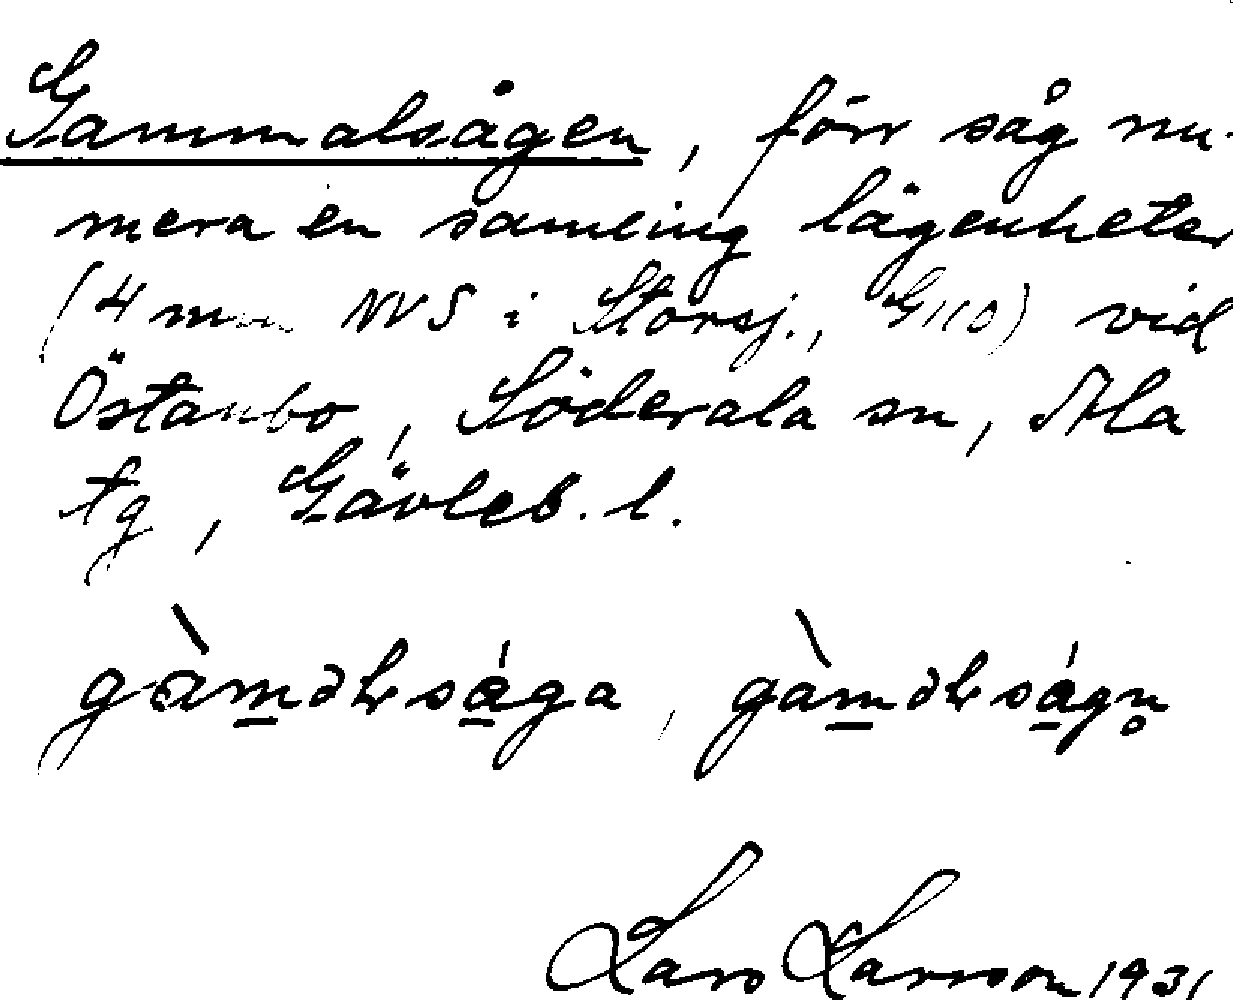 Gammalsågen, förr såg nu-
mera en samling lägenheter
(4 mm NVS i Storsj., G110) vid
Östanbo, Söderala sn, Ala
tg, Gävleb. l.
Lars Larsson 1931